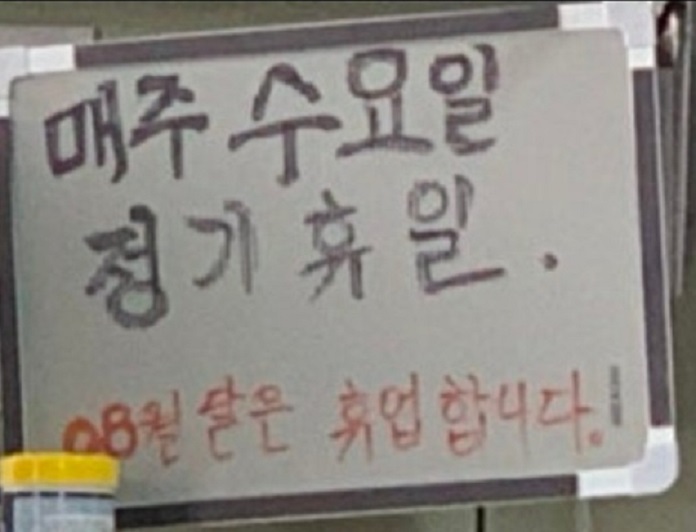 매주 수요일
정기휴일.
08월 달은 휴업합니다.